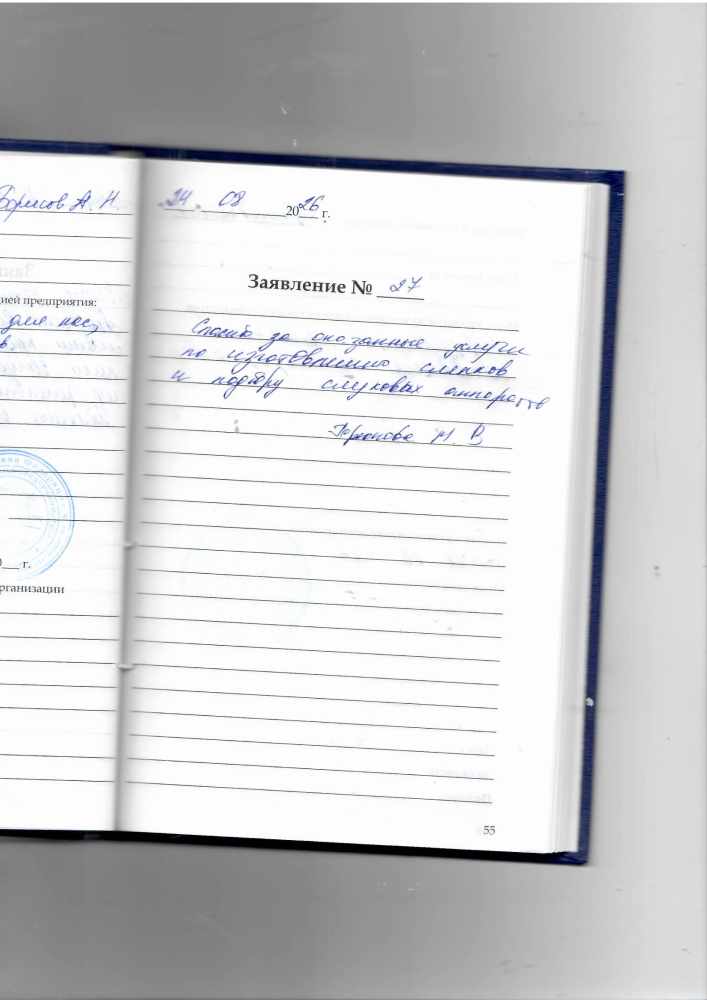 Борисов А. Н.
цией предприятия:
для нас,
в.
г.
рганизации
24. 08 2026 г.
Заявление № 27
Спасибо за оказанные услуги
по изготовлению слепков
и подбору слуховых аппаратов
М. В.
55